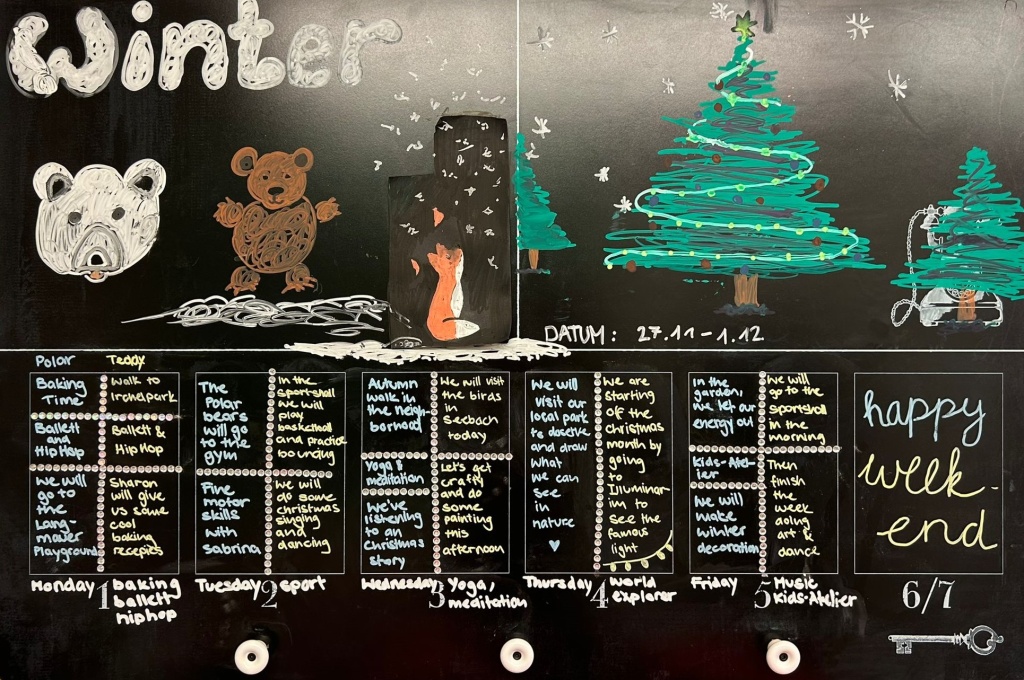 Winter
DATUM: 27.11-1.12
Polar
Teddy
Baking
Time
Ballett
and
HipHop
We will
go to
the
Lang-
mauer
Playground
Walk to
Irchelpark
Ballett &
HipHop
Sharon
will give
us some
cool
baking
recepies
Monday 1 baking
ballett
hiphop
The
Polar
bears
will go
to the
gym
Fine
motor
skills
with
Sabrina
In the
sportshall
we will
play
basketball
and practice
bouncing
We will
do some
christmas
singing
and
dancing
Tuesday 2 sport
Autumn
walk in
the neigh-
borhood
Yoga &
meditation
We've
listening
to an
Christmas
story
We will visit
the birds
in
Seebach
today
Let's get
crafty
and do
some
painting
this
afternoon
Wednesday 3 Yoga,
meditation
We will
visit our
local park
to observe
and draw
what
we can
see
in
nature
We are
starting
off the
christmas
month by
going
to
Illuminar-
ium to
see the
famous
light
Thursday 4 World
explorer
In the
garden,
we let our
energy out
Kids-Atel-
ier
We will
make
winter
decoration
We will
go to the
sportshall
in the
morning
Then
finish
the
week
doing
art &
dance
Friday 5 Music
Kids-Atelier
happy
week-
end
6/7